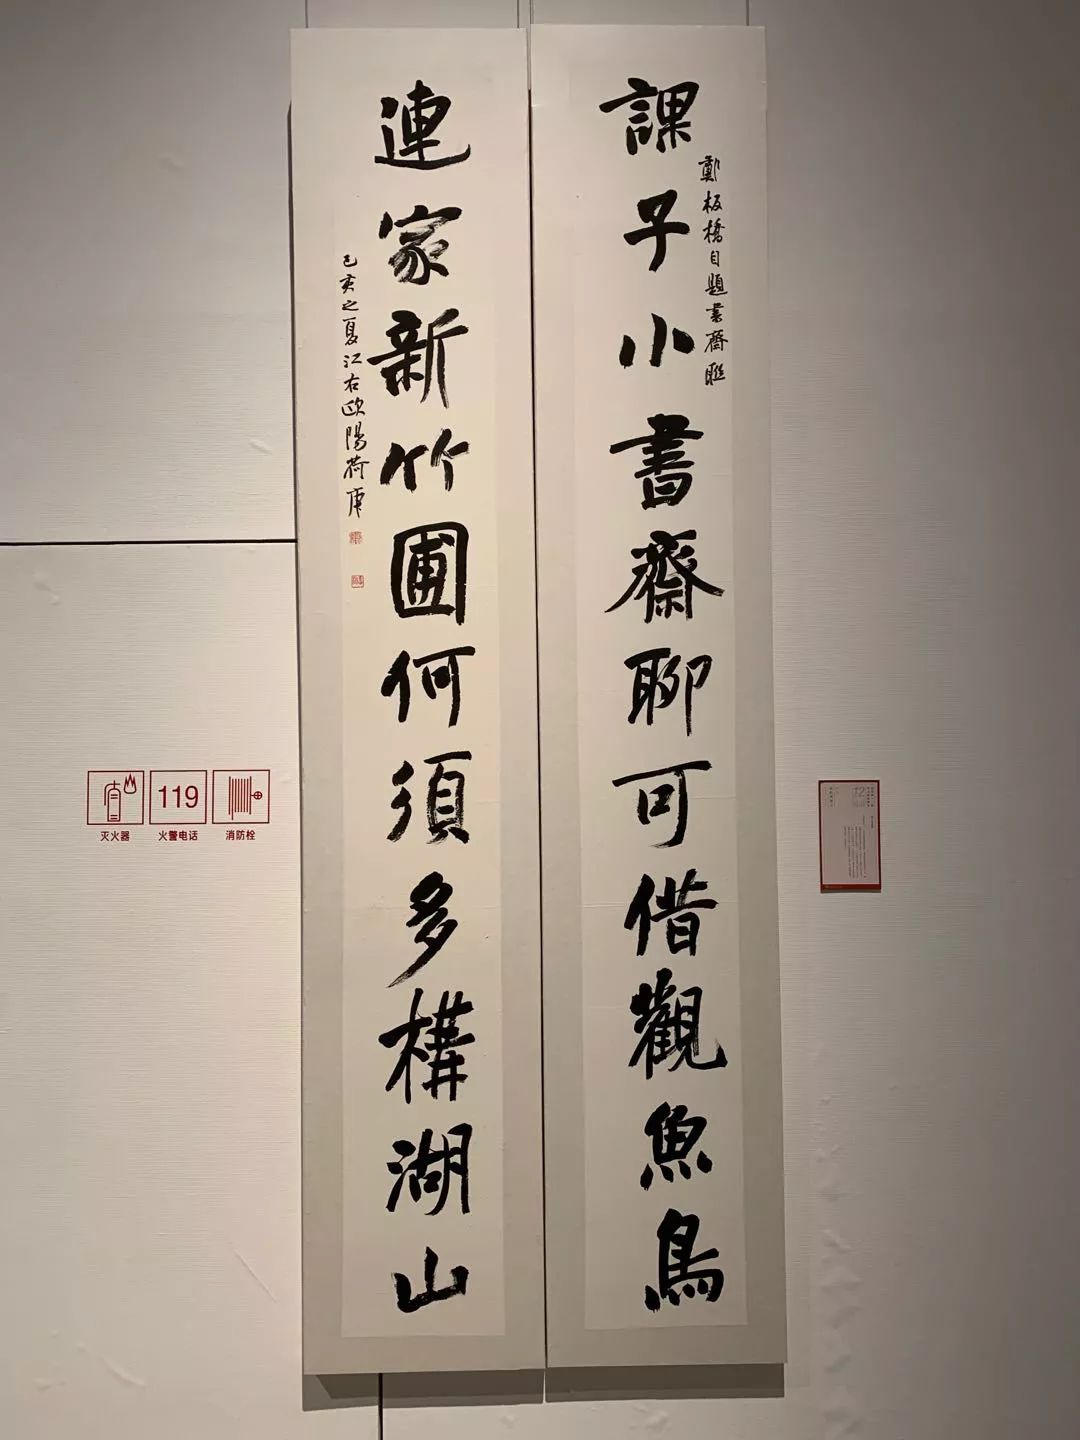 課子小書齋聊可借觀魚鳥
鄭板橋自題書齋聯
連家新竹圃何須多構湖山
己亥之夏江右歐陽荷庚
灭火器
119
火警电话
消防栓